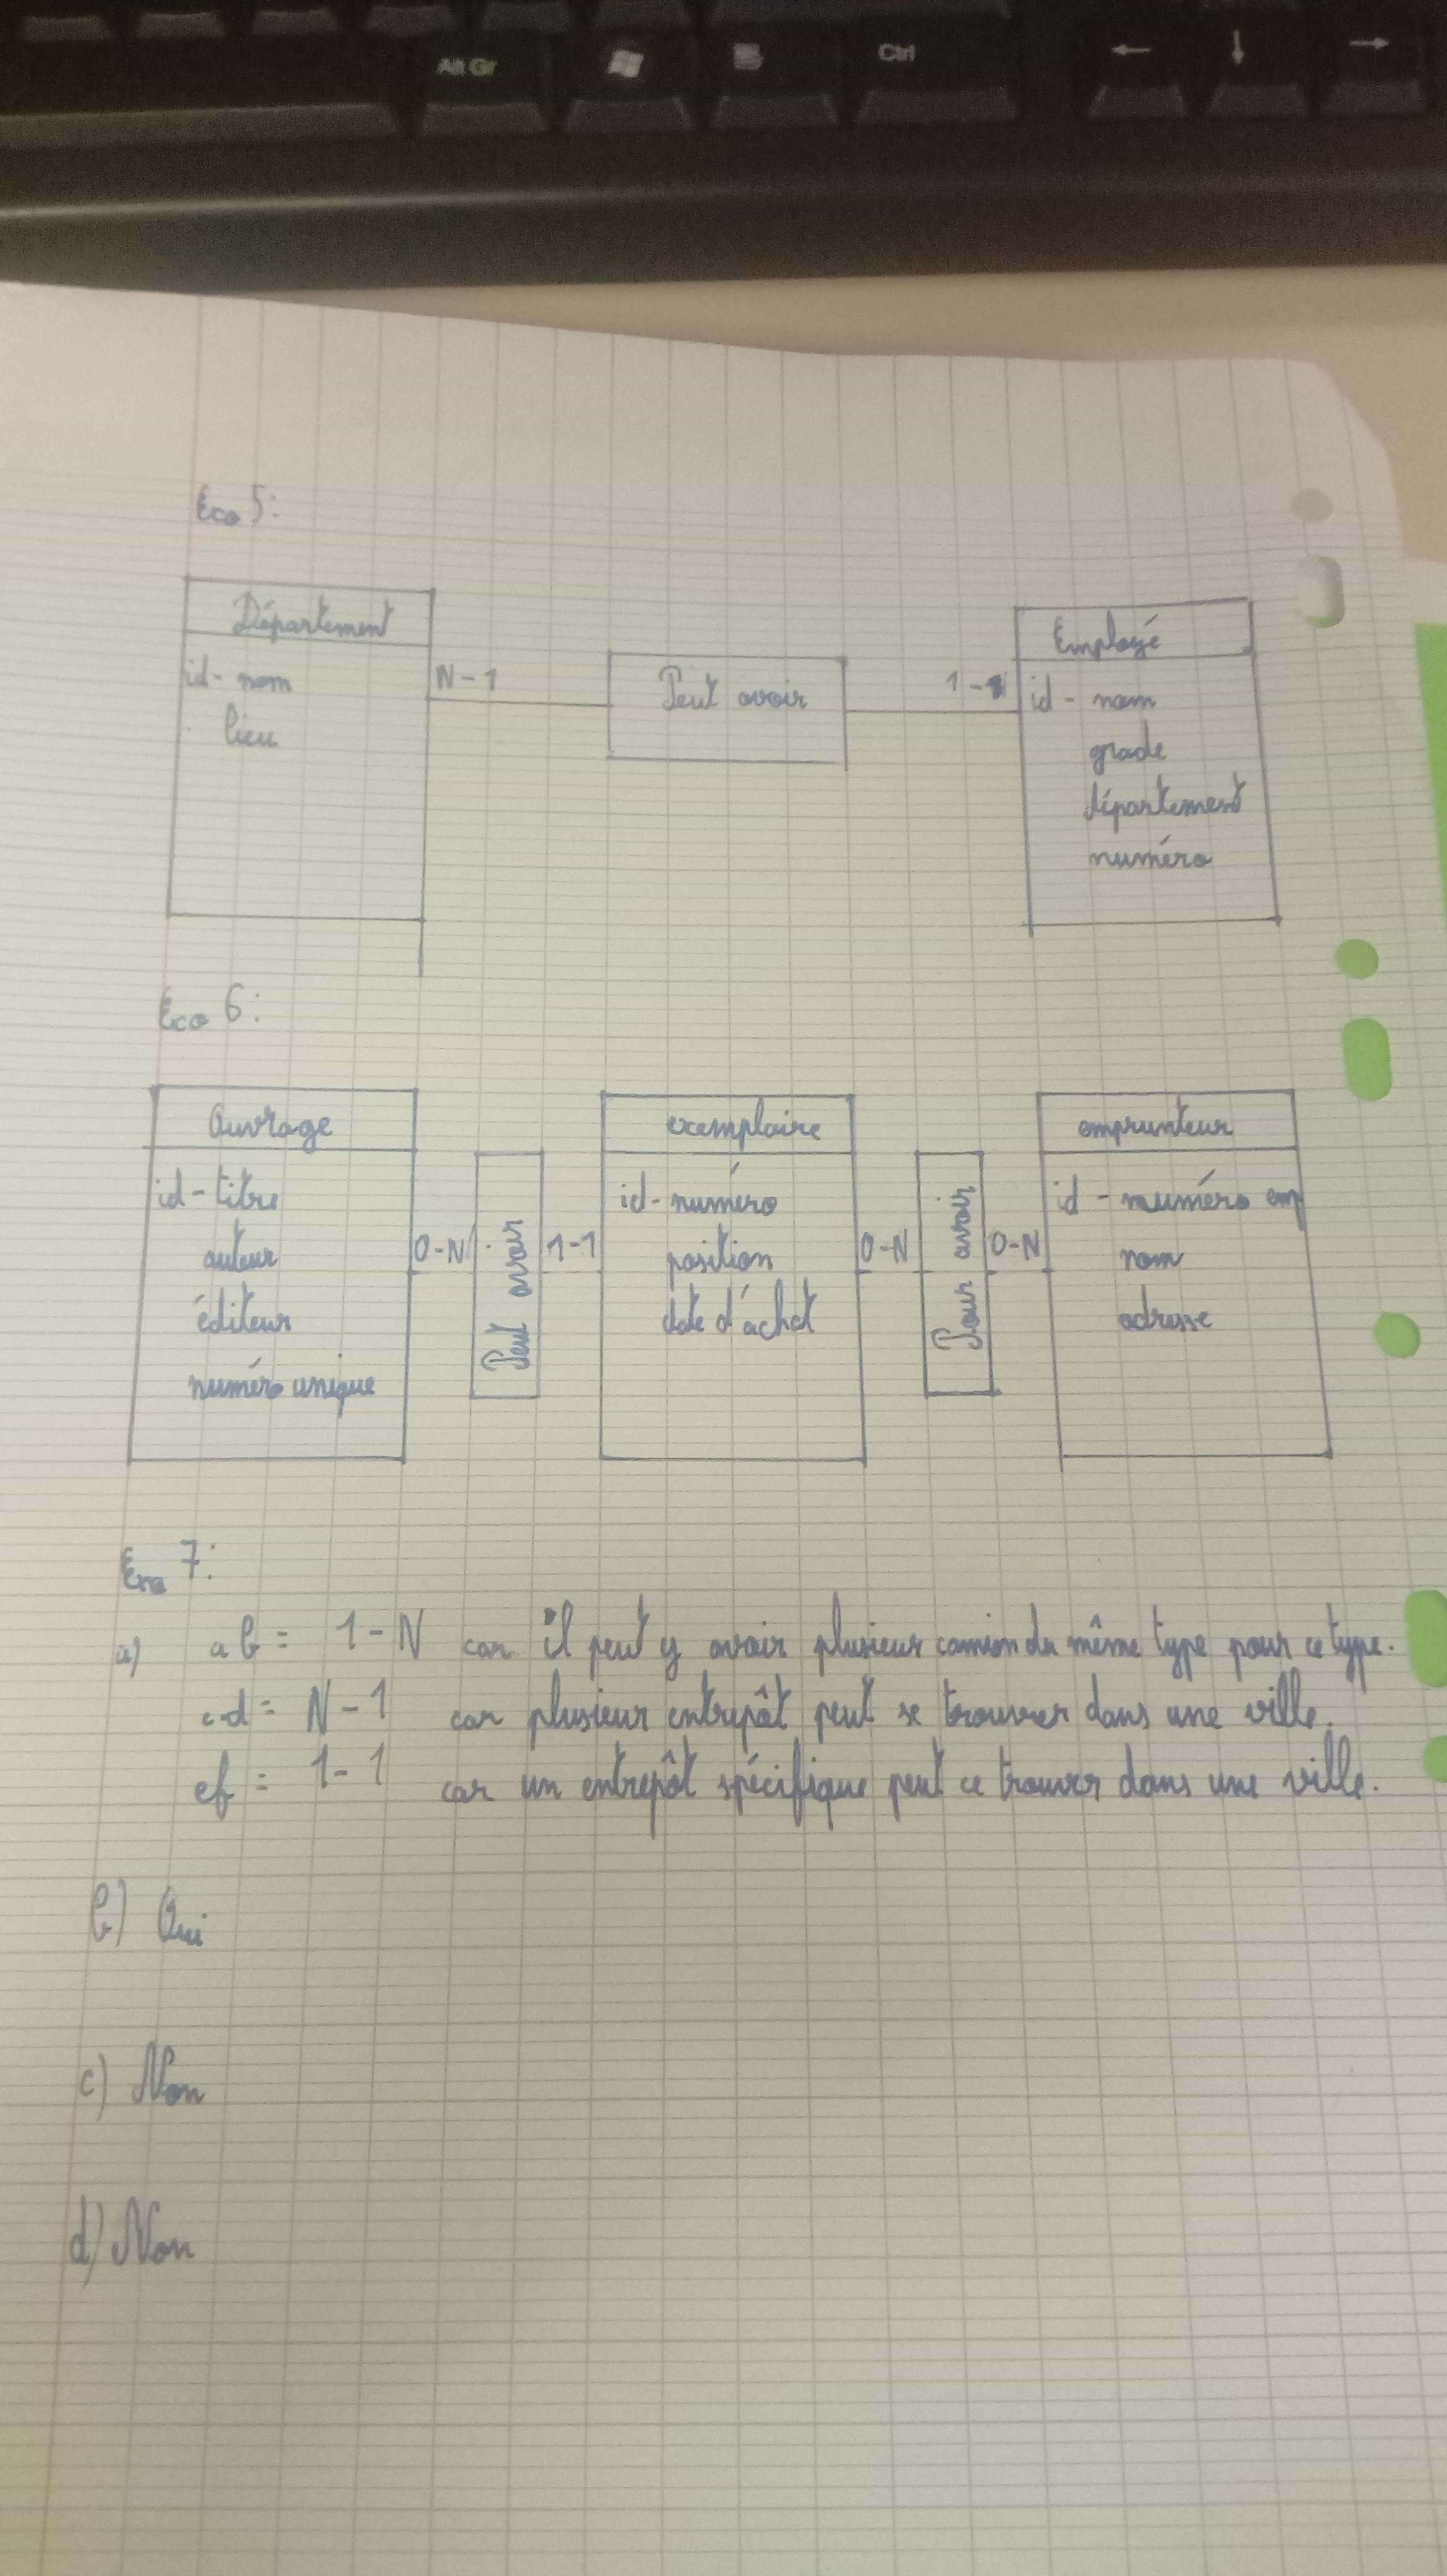 Alt Gr
Ctrl
← ↓ →
Exo 5:
Département
id- nom
lieu
N-1
Peut avoir
1-1
Employé
id- nom
grade
département
numéro
Exo 6:
Ouvrage
id- titre
auteur
éditeur
numéro unique
0-N
Peut avoir
1-1
exemplaire
id- numéro
position
date d'achat
0-N
Pour avoir
0-N
emprunteur
id - numéro emp
nom
adresse
Exo 7:
a) ab = 1-N car il peut y avoir plusieur camion du même type pour ce type.
c-d = N-1 car plusieur entrepôt peut se trouver dans une ville.
ef = 1-1 car un entrepôt spécifique peut ce trouver dans une ville.
b) Oui
c) Non
d) Non